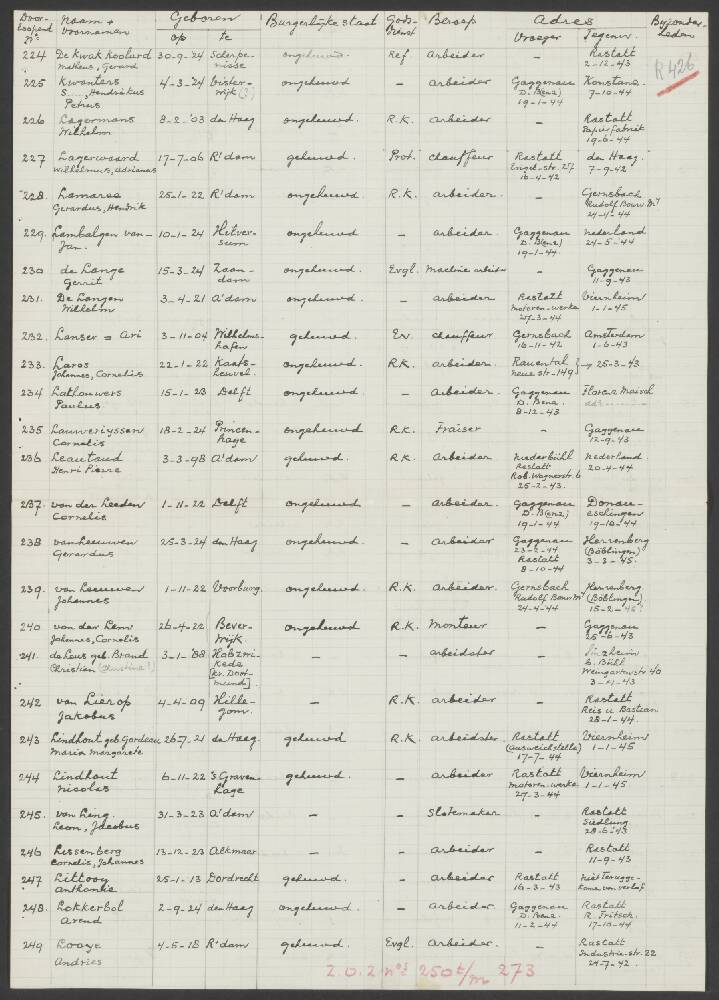 Door- Naam + Geboren Burgerlijke staat Gods- Beroep Adres Bijzonder-
loopend Voornamen op te dienst Vroeger Tegenw. heden
No
R 426
224 De Kwak Roelurd 30-9-'24 Scherpe- ongehuwd. Ref arbeider - Rastatt
Matheus, Gerard nisse 2-12-43
225 Kwanters 4-3-'24 Oister- ongehuwd - Arbeider Gaggenau Konstanz.
S....., Hendrikus wijk (?) D. B(enz) 7-10-44
Petrus 19-1-44
226 Lagermans 8-2-'03 den Haag ongehuwd. R.K. arbeider - Rastatt
Wilhelm Papierfabrik
19-6-44
227 Lagerwaard 17-7-06 R'dam gehuwd. Prot. chauffeur Rastatt den Haag.
Wilhelmus, Adrianus Engelstr. 27 7-9-42
16-4-42
228. Lamaree 25-1-22 R'dam ongehuwd. R.K. arbeider. - Gernsbach
Gerardus, Hendrik Rudolf Bauw. Mr
24-4-44
229. Lambalgen van- 10-1-24 Hilver- ongehuwd - arbeider. Gaggenau Nederland
Jan. sum D. B(enz) 24-5-44
19-1-44.
230 de Lange 15-3-24 Zaan- ongehuwd. Evgl. Machine arbeider - Gaggenau
Gerrit dam 11-9-43
231. De Langen 3-4-21 A'dam ongehuwd. - arbeider Rastatt Viernheim
Wilhelm Motoren-werke 1-1-45
27-3-44
232. Lanser = Ari 3-11-04 Wilhelms- gehuwd. Ev. chauffeur Gernsbach Amsterdam
hafen 16-11-42 1-6-43
233. Laros 22-1-22 Kaats- ongehuwd. R.K. arbeider. Rauental } → 25-3-43
Johannes, Cornelis heuvel. neue str-149
234 Lathouwers 15-1-23 Delft ongehuwd - Arbeider. Gaggenau
Paulus. D. Benz.
8-12-43
235 Lauwerijssen 18-2-24 Princen- ongehuwd R.K. Fraiser - Gaggenau
Cornelis hage 12-9-43
236 Leautaud 3-3-98 A'dam gehuwd. R.K. Arbeider Niederbühl Nederland.
Henri Pierre Rastatt 20-4-44
Rob. Wagnerstr. 6
25-2-43.
237. van der Leeden 1-11-22 Delft ongehuwd - arbeider. Gaggenau Donau-
Cornelis D. B(enz) eschingen
19-1-44 19-10-44
238 van Leeuwen 25-3-24 den Haag ongehuwd. - arbeider Gaggenau Herrenberg
Gerardus 23-2-44 (Böblingen)
Rastatt 3-3-45.
8-10-44
239. van Leeuwen 1-11-22 Voorburg. ongehuwd. R.K. arbeider. Gernsbach Herrenberg
Johannes Rudolf Bauw Mr (Böblingen)
24-4-44 15-2-45?
240 van der Lem 26-4-22 Bever- ongehuwd R.K. Monteur - Gaggenau
Johannes, Cornelis wijk. 25-6-43
241. de Leus geb. Brand 3-1-'88 Holzwi- - - arbeidster - Sinzheim
Christien (Christine!) kede b. Bühl
[Kr. Dort- Weingartenstr 40
mund]. 3-11-43
242 van Lierop 4-4-09 Hille- - R.K. arbeider - Rastatt
Jakobus gom. Reis u Bastian
28-1-44.
243 Lindhout geb. Gordeau 26-7-21 den Haag. gehuwd R.K. arbeidster Rastatt Viernheim
Maria Margarete (Ausweichstelle) 1-1-45
17-7-44
244 Lindhout 6-11-22 's Graven- gehuwd. - arbeider Rastatt Viernheim
Nicolas hage Motoren-werke 1-1-45
27-3-44
245. van Ling. 31-3-23 A'dam - - Slotemaker - Rastatt
Leon, Jacobus Siedlung
28-6-43
246 Lissenberg 13-12-23 Alkmaar - - arbeider - Rastatt
Cornelis, Johannes 11-9-43
247 Littooy 25-1-13 Dordrecht gehuwd. - arbeider Rastatt niet terugge-
Anthonie 16-3-43 komen van verlof
248. Lokkerbol 2-9-24 den Haag ongehuwd. - arbeider. Gaggenau Rastatt
Arend D. Benz. R. Fritsch.
11-2-44 17-10-44
249 Looye 4-5-18 R'dam gehuwd. Evgl. Arbeider. - Rastatt
Andries Industrie-str. 22
24-7-42.
Z.O.Z. nos 250 t/m 273